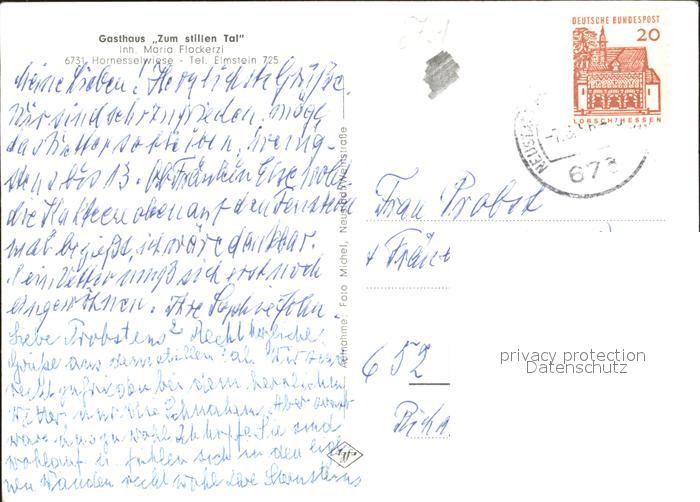 Gasthaus „Zum stillen Tal"
Inh. Maria Flockerzi
6731 Hornesselwiese - Tel. Elmstein 725
DEUTSCHE BUNDESPOST
20
LORSCH/HESSEN
673
Meine Lieben! Herzlichste Grüße.
Wir sind sehr zufrieden. möge
das Wetter so bleiben, wenig-
stens bis 13. Ob Fräulein Else wohl
die Kakteen oben auf den Fenstern
mal begießt, ich wäre dankbar.
mein Vetter muß sich erst noch
eingewöhnen. Ihre Sophie John.
Liebe Probstens! Recht herzliche
Grüße aus dem stillen Tal. Wir sind
recht zufrieden bei dem herrlichen
Wetter
wohlauf u. fühlen sich in den
vier Wänden recht wohl
Aufnahme: Foto Michel, Neustadt/Weinstraße
Frau Probst
+
652
privacy protection
Datenschutz